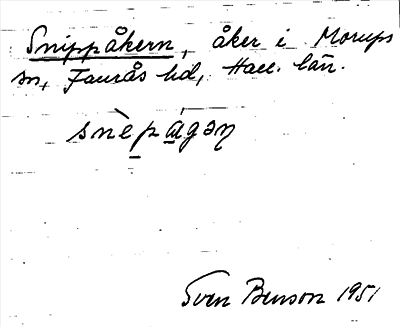 Snippåkern, åker i Morups
sn, Faurås hd, Hall. län.
snèpágəη
Sven Benson 1951